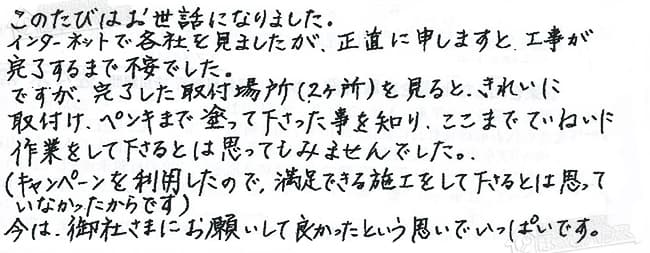 このたびはお世話になりました。
インターネットで各社を見ましたが、正直に申しますと、工事が
完了するまで不安でした。
ですが、完了した取付場所(2ヶ所)を見ると、きれいに
取付け、ペンキまで塗って下さった事を知り、ここまでていねいに
作業をして下さるとは思ってもみませんでした。
(キャンペーンを利用したので、満足できる施工をして下さるとは思って
いなかったからです)
今は、御社さまにお願いして良かったという思いでいっぱいです。